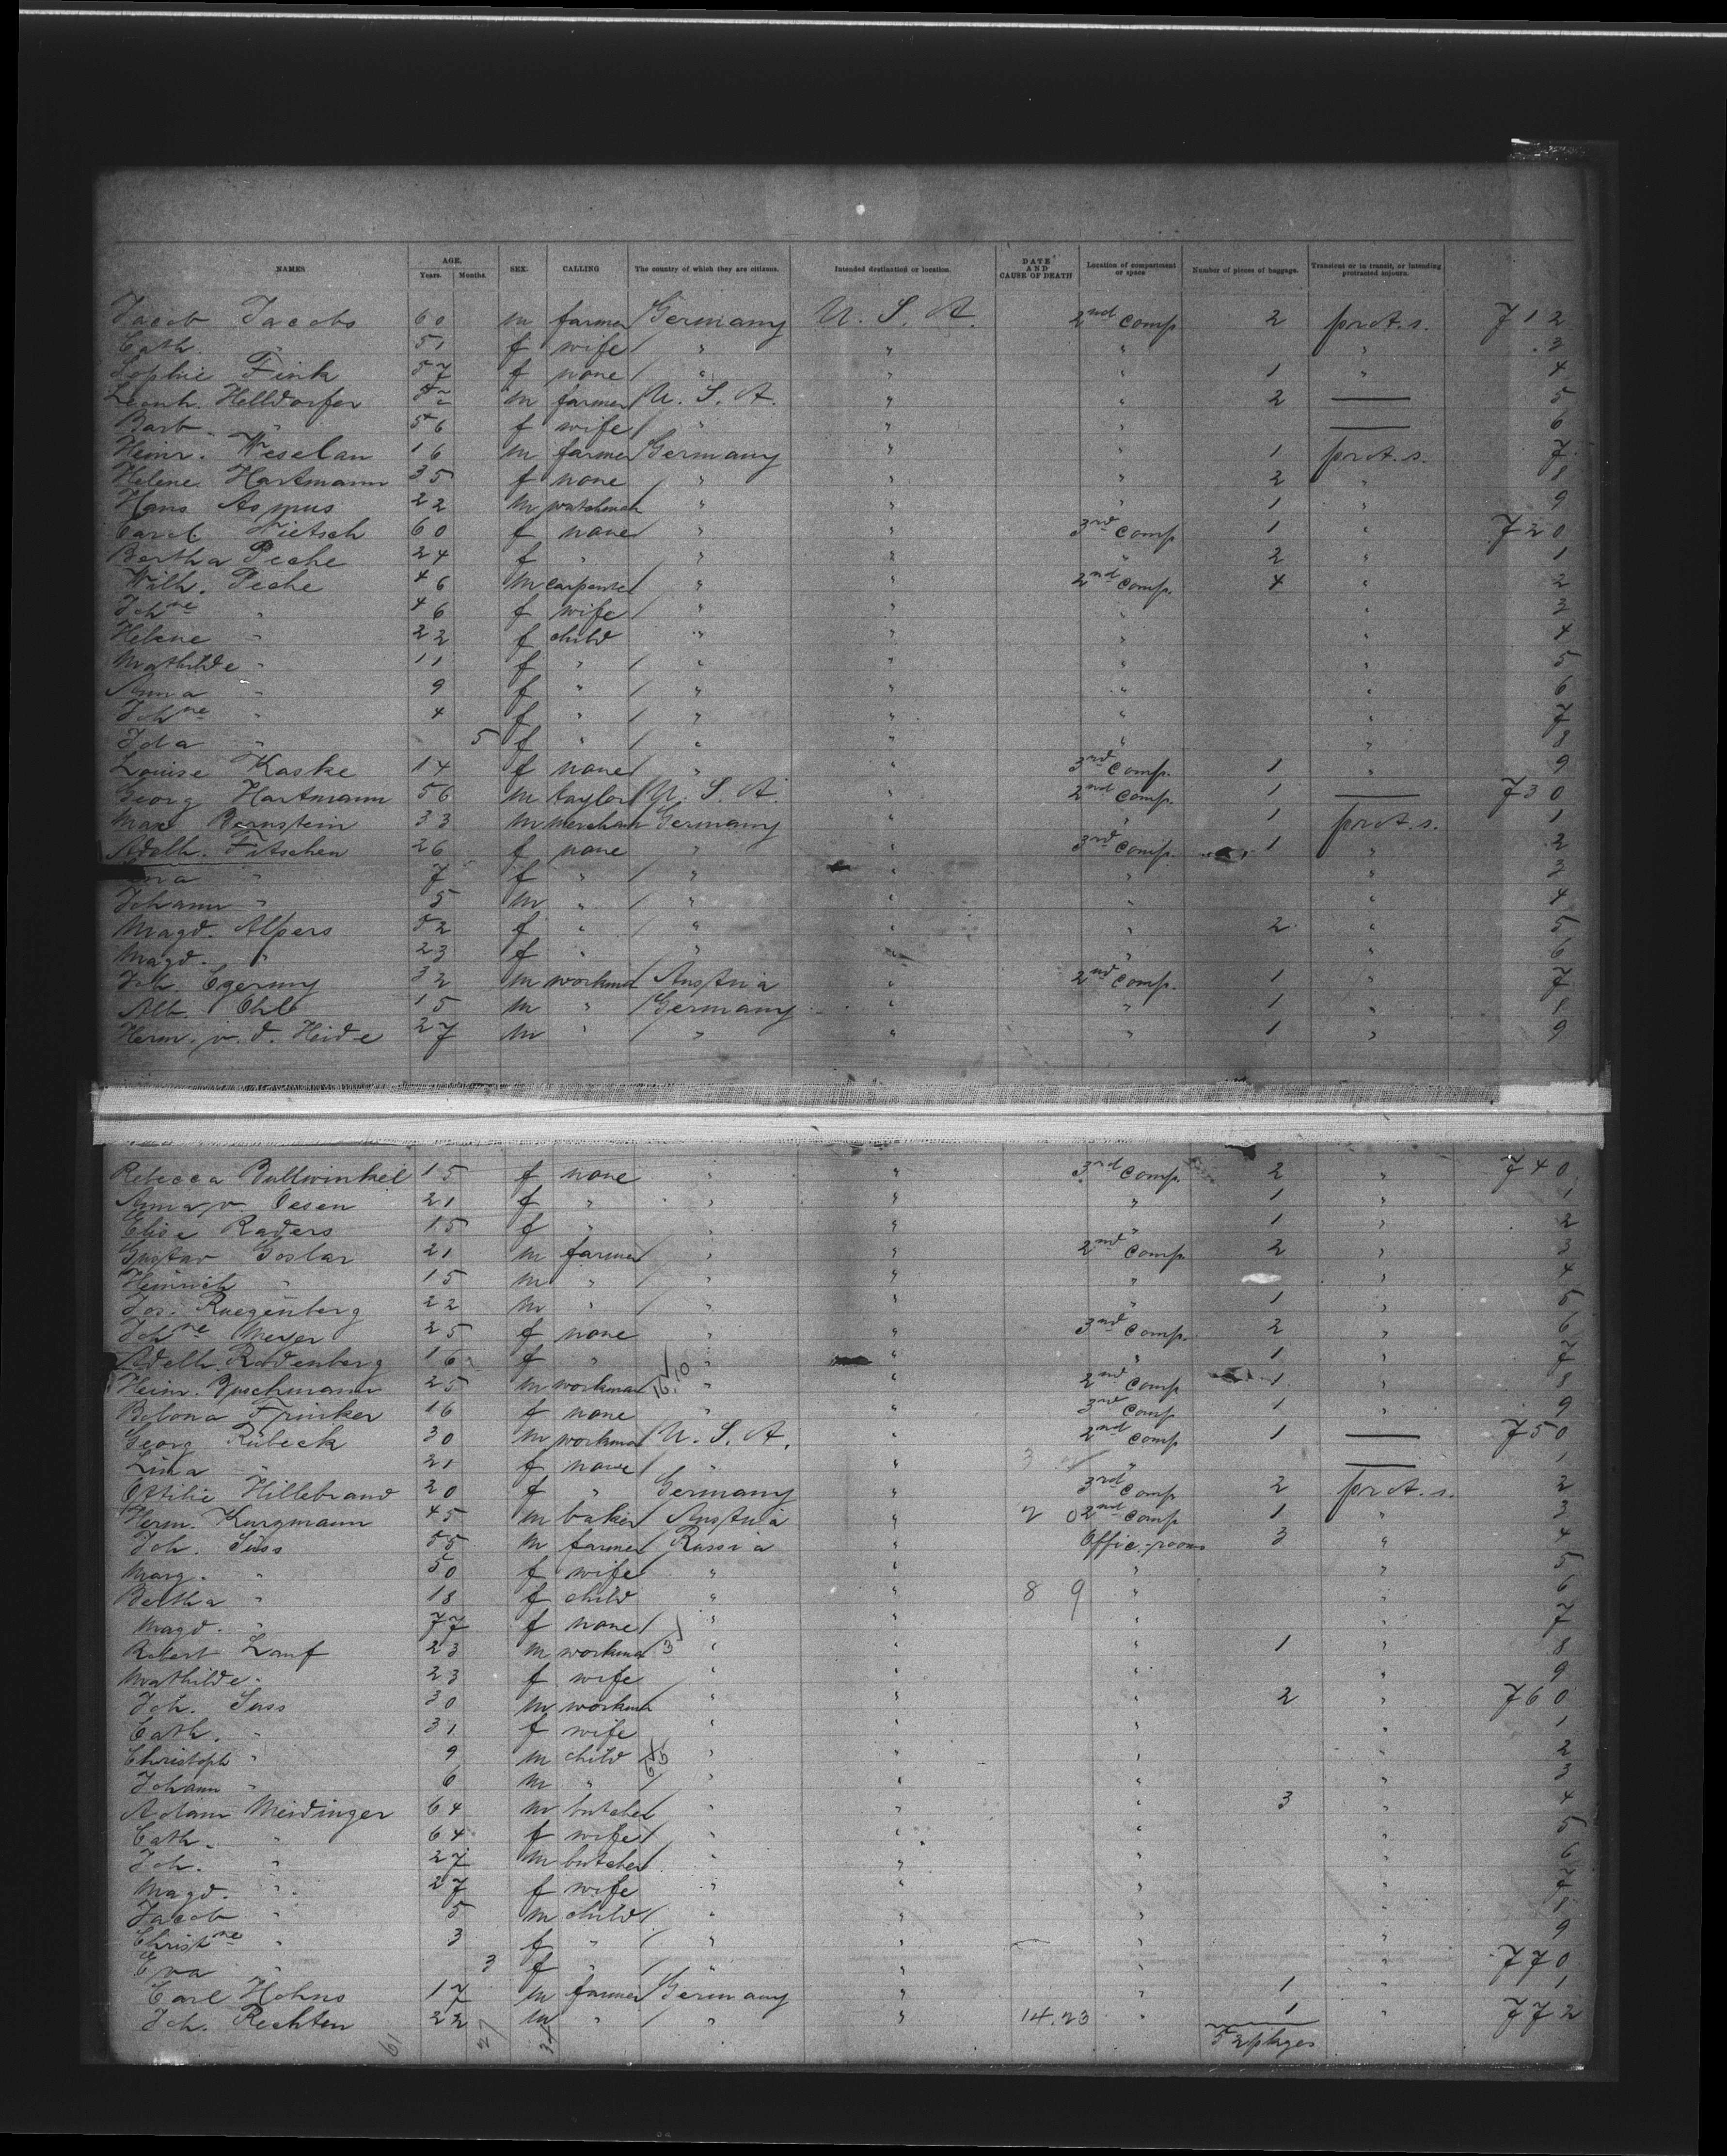 NAMES AGE. Years. Months. SEX. CALLING The country of which they are citizens. Intended destination or location. DATE AND CAUSE OF DEATH Location of compartment or space Number of pieces of baggage. Transient or in transit, or intending protracted sojourn.
Jacob Jacobs 60 m farmer Germany U. S. A. 2nd comp. 2 prot. s. 712
Cath. " 51 f wife " " " " 3
Sophie Fink 57 f none " " " 1 " 4
Leonh. Helldorfer m farmer U. S. A. " " 2 — 5
Barb. " 56 f wife " " " — 6
Heinr. Weselan 16 m farmer Germany " " 1 prot. s. 7
Helene Hartmann 35 f none " " " 2 " 8
Hans Asmus 22 m watchmak " " " 1 " 9
Carol. Tietsch 60 f none " " 3rd comp 1 " 720
Bertha Peche 24 f " " " " 2 " 1
Wilh. Peche 46 m carpenter " " 2nd comp. 4 " 2
Johne " 46 f wife " " " " 3
Helene " 22 f child " " " " 4
Mathilde " 11 f " " " " " 5
Anna " 9 f " " " " " 6
Johne " 4 f " " " " " 7
Ida " 5 f " " " " " 8
Louise Kaske 14 f none " " 3rd comp. 1 " 9
Georg Hartmann 56 m taylor U. S. A. " 2nd comp. 1 — 730
Max Bernstein 33 m merchan Germany " " 1 prot. s. 1
Adelh. Fitschen 26 f none " " 3rd comp. 1 " 2
" 7 f " " " " " 3
Johann " 5 m " " " " " 4
Magd. Alpers 52 f " " " " 2 " 5
Magd. " 23 f " " " " " 6
Joh. Cgerny 32 m workman Austria " 2nd comp. 1 " 7
Alb. Ohl 15 m " Germany " " 1 " 8
Herm. v. d. Heide 27 m " " " " 1 " 9
Rebecca Bullwinkel 15 f none " " 3rd comp. 2 " 740
Anna v. Oesen 21 f " " " " 1 " 1
Elise Raders 15 f " " " " 1 " 2
Gustav Goslar 21 m farmer " " 2nd comp. 2 " 3
Heinrich " 15 m " " " " " 4
Jos. Ruegenberg 22 m " " " " 1 " 5
Johne Meyer 25 f none " " 3rd comp. 2 " 6
Adelh. Rodenberg 16 f " " " " 1 " 7
Heinr. Buschmann 25 m workman 16/10 " " 2nd comp 1 " 8
Bebona Frinker 16 f none " " 3rd comp 1 " 9
Georg Rübeck 30 m workman U. S. A. " 2nd comp 1 — 750
Lina " 21 f none " " 3 " — 1
Ottilie Hillebrand 20 f " Germany " 3rd comp 2 prot. s. 2
Herm. Kurgmann 45 m baker Austria " 2 0 2nd comp 1 " 3
Joh. Suss 55 m farmer Russia " Offic.-rooms 3 " 4
Marg. " 50 f wife " " " " 5
Bertha " 18 f child " " 8 9 " " 6
Magd. " 77 f none " " " " 7
Robert Lauf 23 m workman 3 " " " 1 " 8
Mathilde " 23 f wife " " " " 9
Joh. Suss 30 m workman " " " 2 " 760
Cath. " 31 f wife " " " " 1
Christoph " 9 m child " " " " 2
Johann " 6 m " " " " " 3
Adam Meidinger 64 m butcher " " " 3 " 4
Cath. " 64 f wife " " " " 5
Joh. " 27 m butcher " " " " 6
Magd. " 27 f wife " " " " 7
Jacob " 5 m child " " " " 8
Christne " 3 f " " " " " 9
Eva " 3 f " " " " " 770
Carl Hohns 17 m farmer Germany " " 1 " 1
Joh. Rechten 22 m " " " 14.23 " 1 " 772
61 27 34 52 pkges